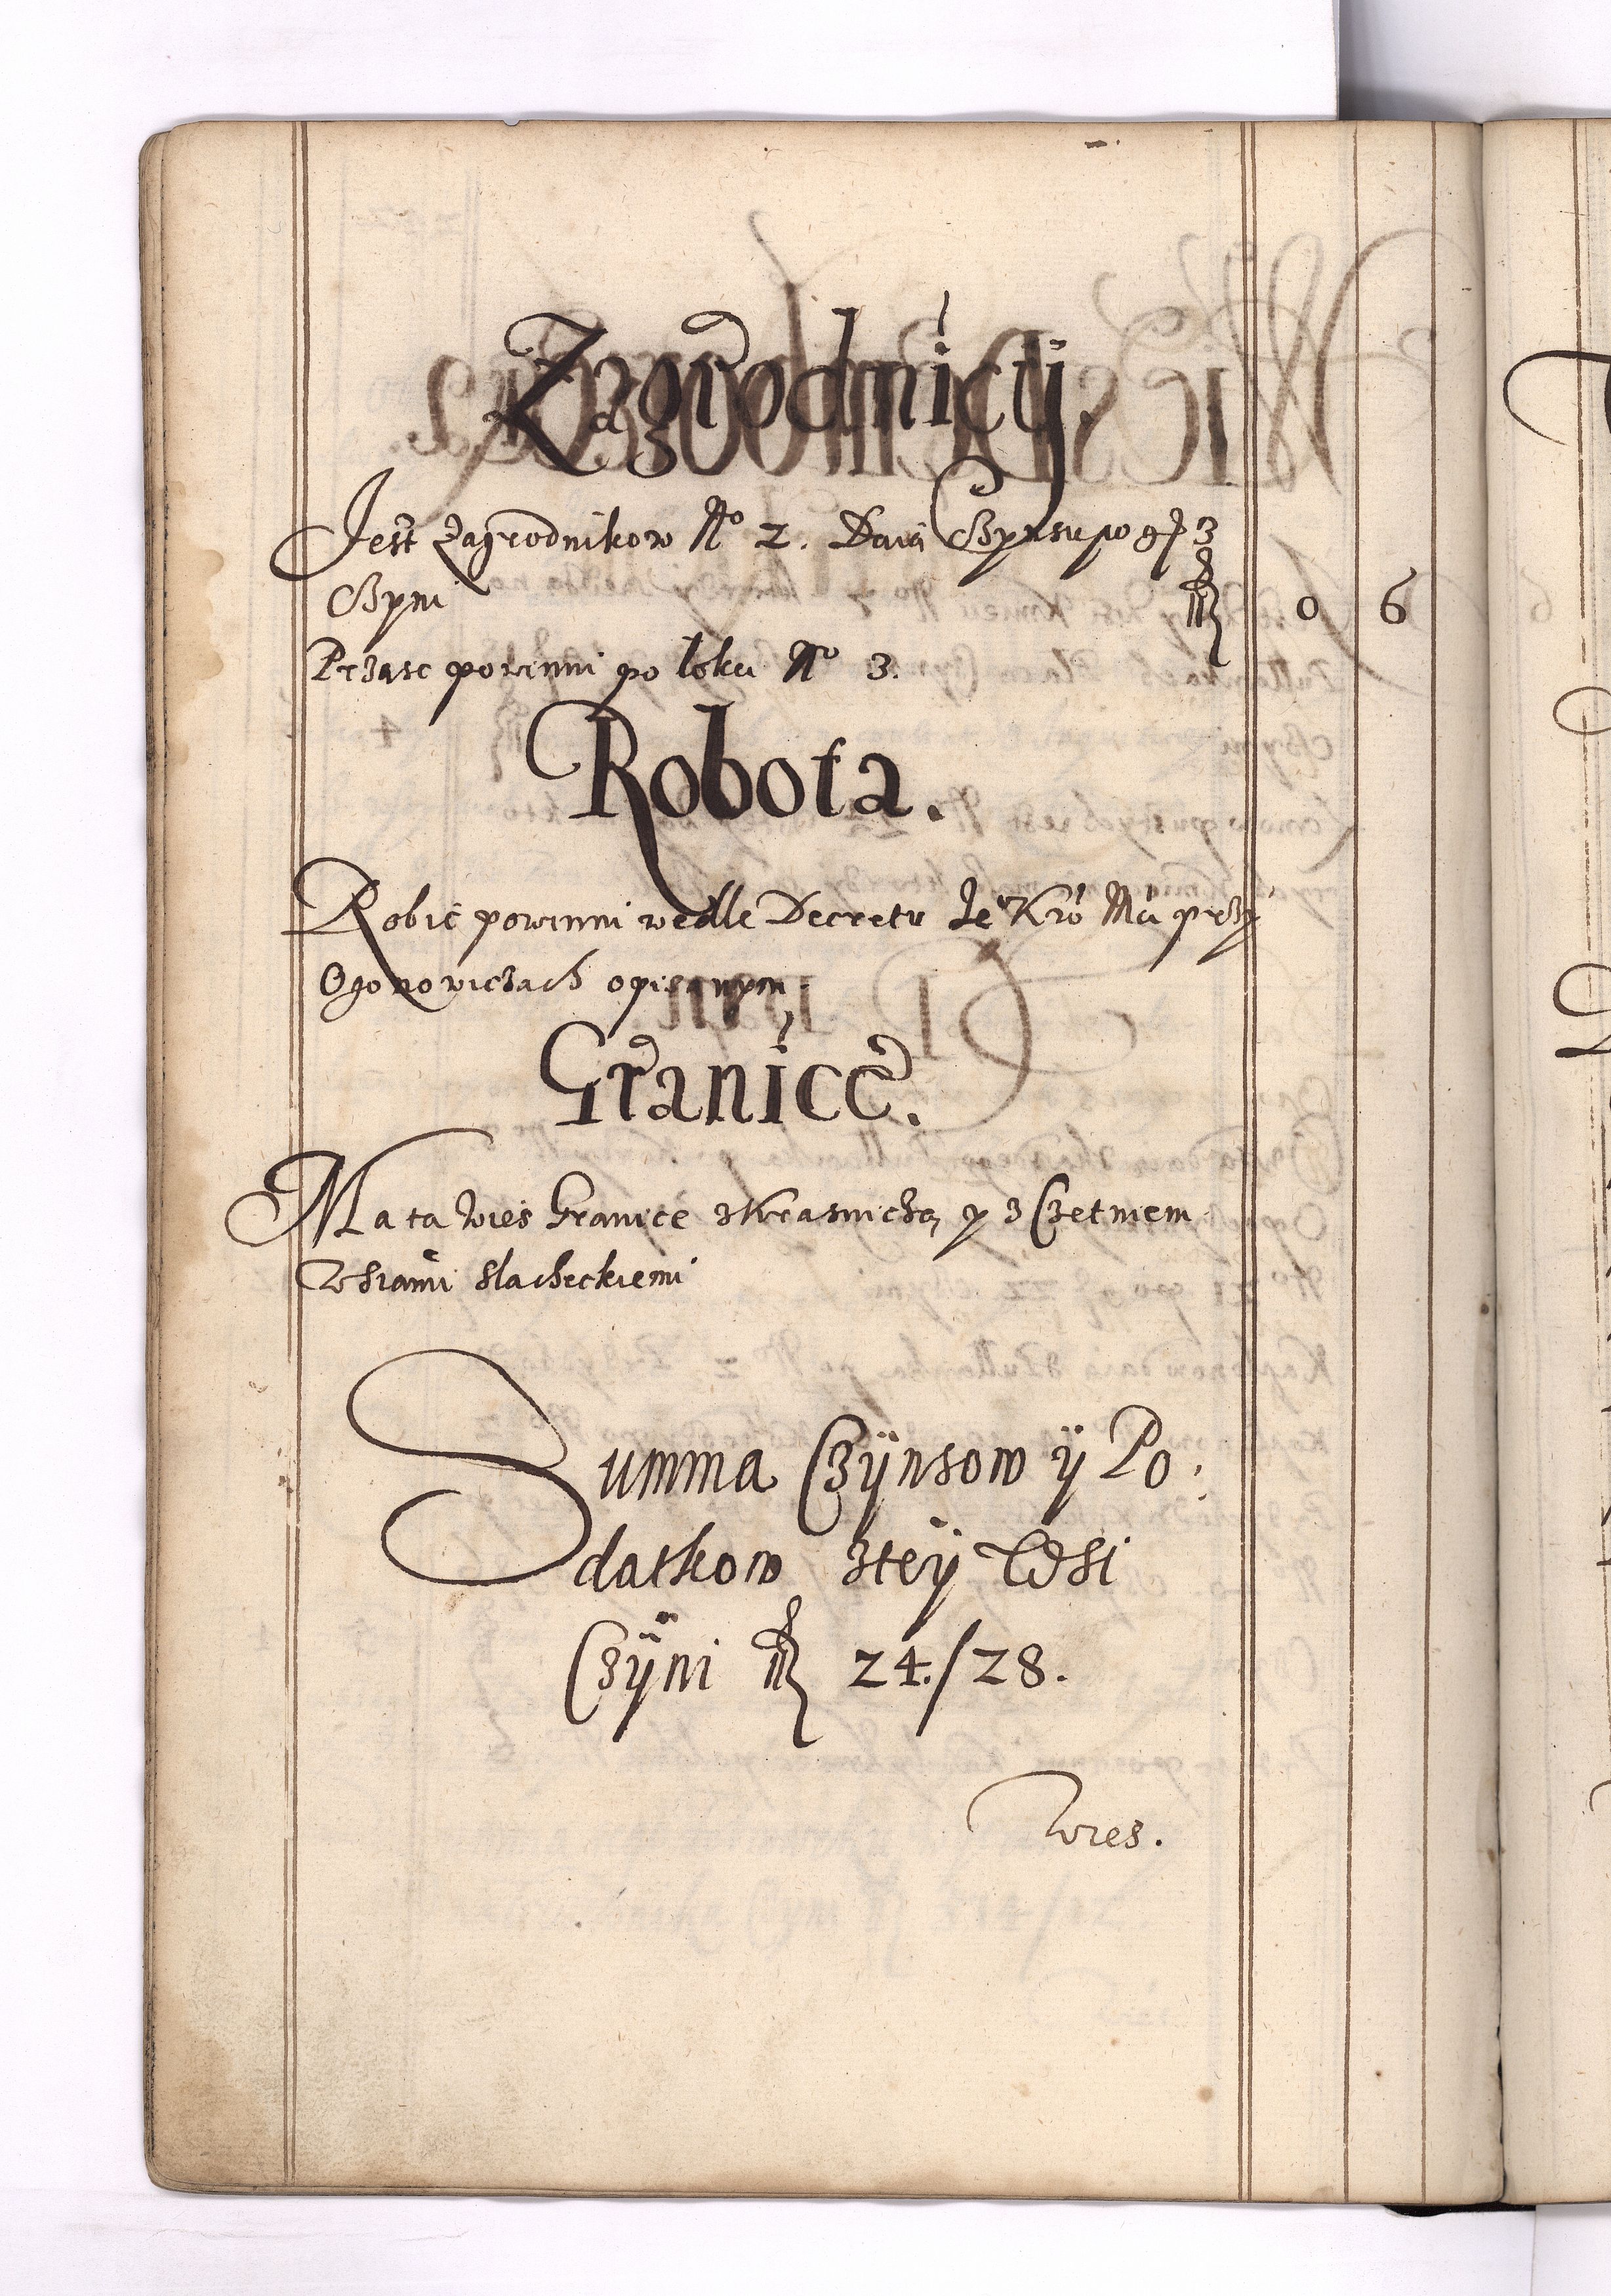 Zagrodnicÿ.
Jest Zagrodnikow No 2. Daią Czynsu po g 3
Czyni fl 0 6
Prząsc powinni po łokci No 3.
Robota.
Robić powinni wedle Decretu Je Kró Mći przÿ
Ogonowiczach opisanym.
Granice.
Ma ta wieś Granice z Krasnicżą y z Czetniem
Wsiami slacheckiemi
Summa Czÿnsow ÿ Po,
datkow zteÿ Wsi
Czÿni fl 24./28.
Wies.